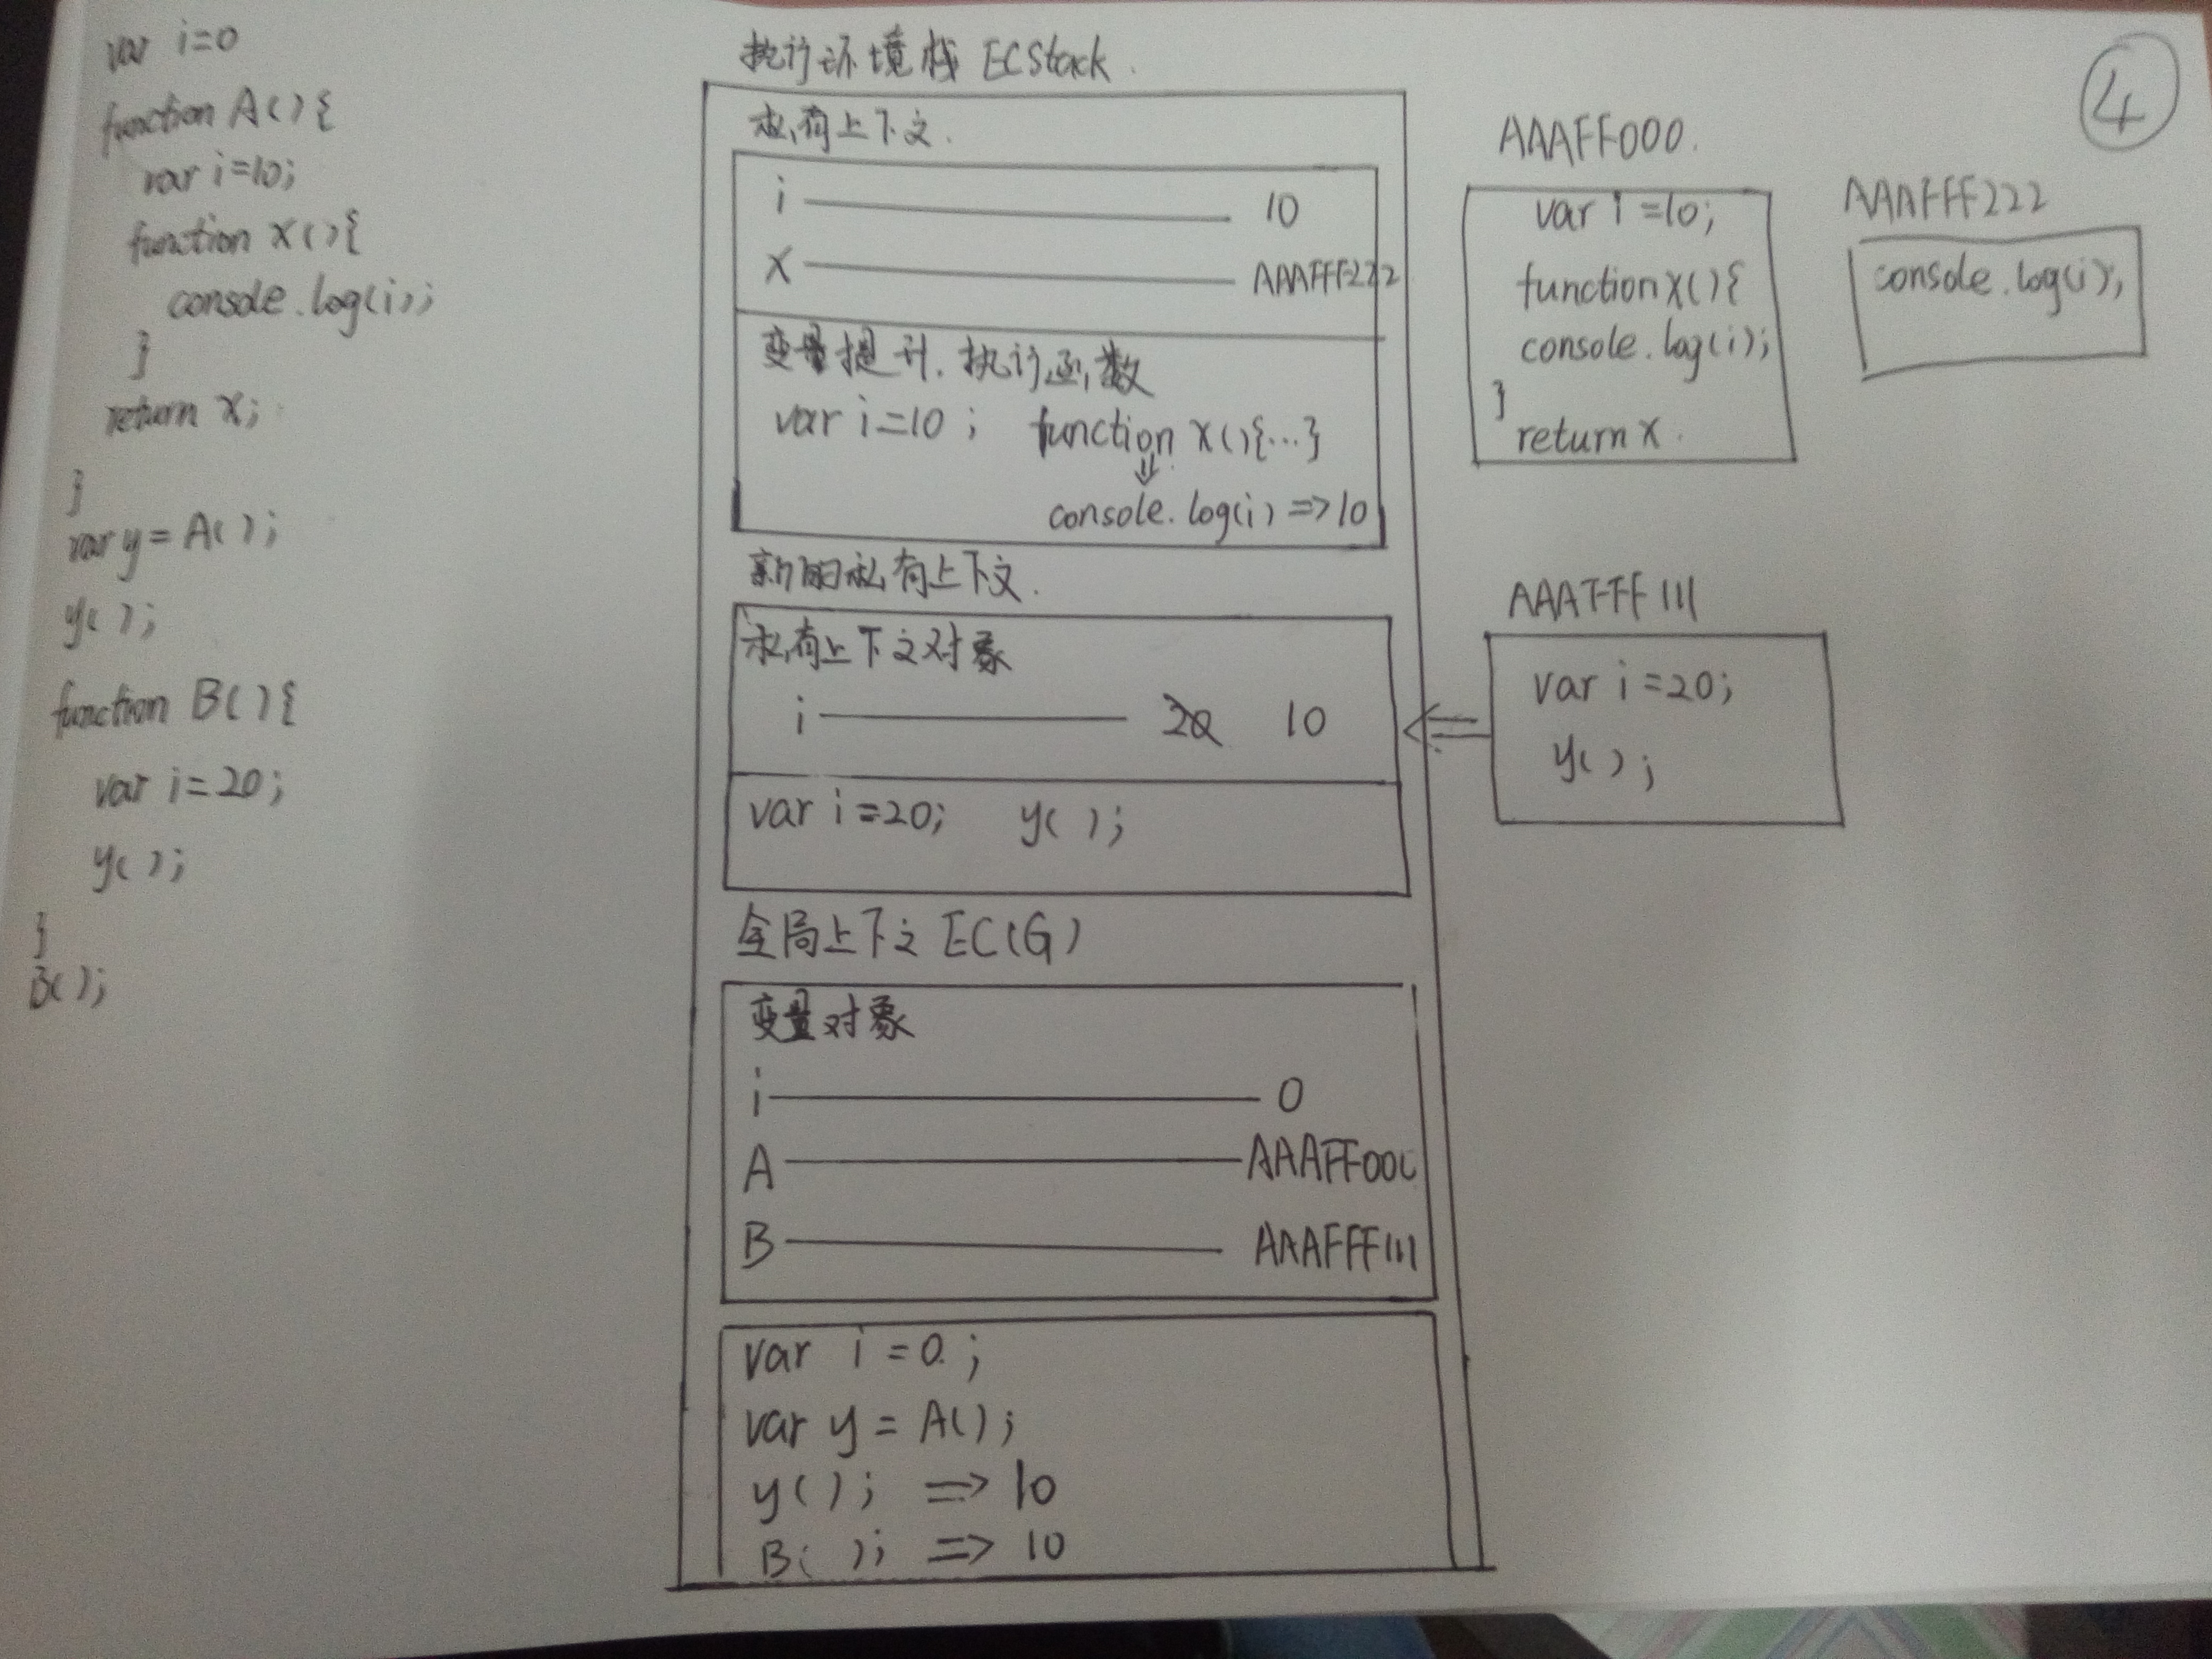 var i=0
function A(){
var i=10;
function x(){
console.log(i);
}
return x;
}
var y = A();
y();
function B(){
var i=20;
y();
}
B();
执行环境栈 ECStack.
私有上下文.
i 10
x AAAFFF222
变量提升. 执行函数
var i=10; function x(){...}
⇓
console.log(i) => 10
新的私有上下文.
私有上下文对象
i 20 10
var i=20; y();
全局上下文 EC(G)
变量对象
i 0
A AAAFF000
B AAAFFF111
var i=0;
var y = A();
y(); => 10
B(); => 10
④
AAAFF000.
var i=10;
function x(){
console.log(i);
}
return x.
AAAFFF222
console.log(i);
AAAFFF111
<=
var i=20;
y();